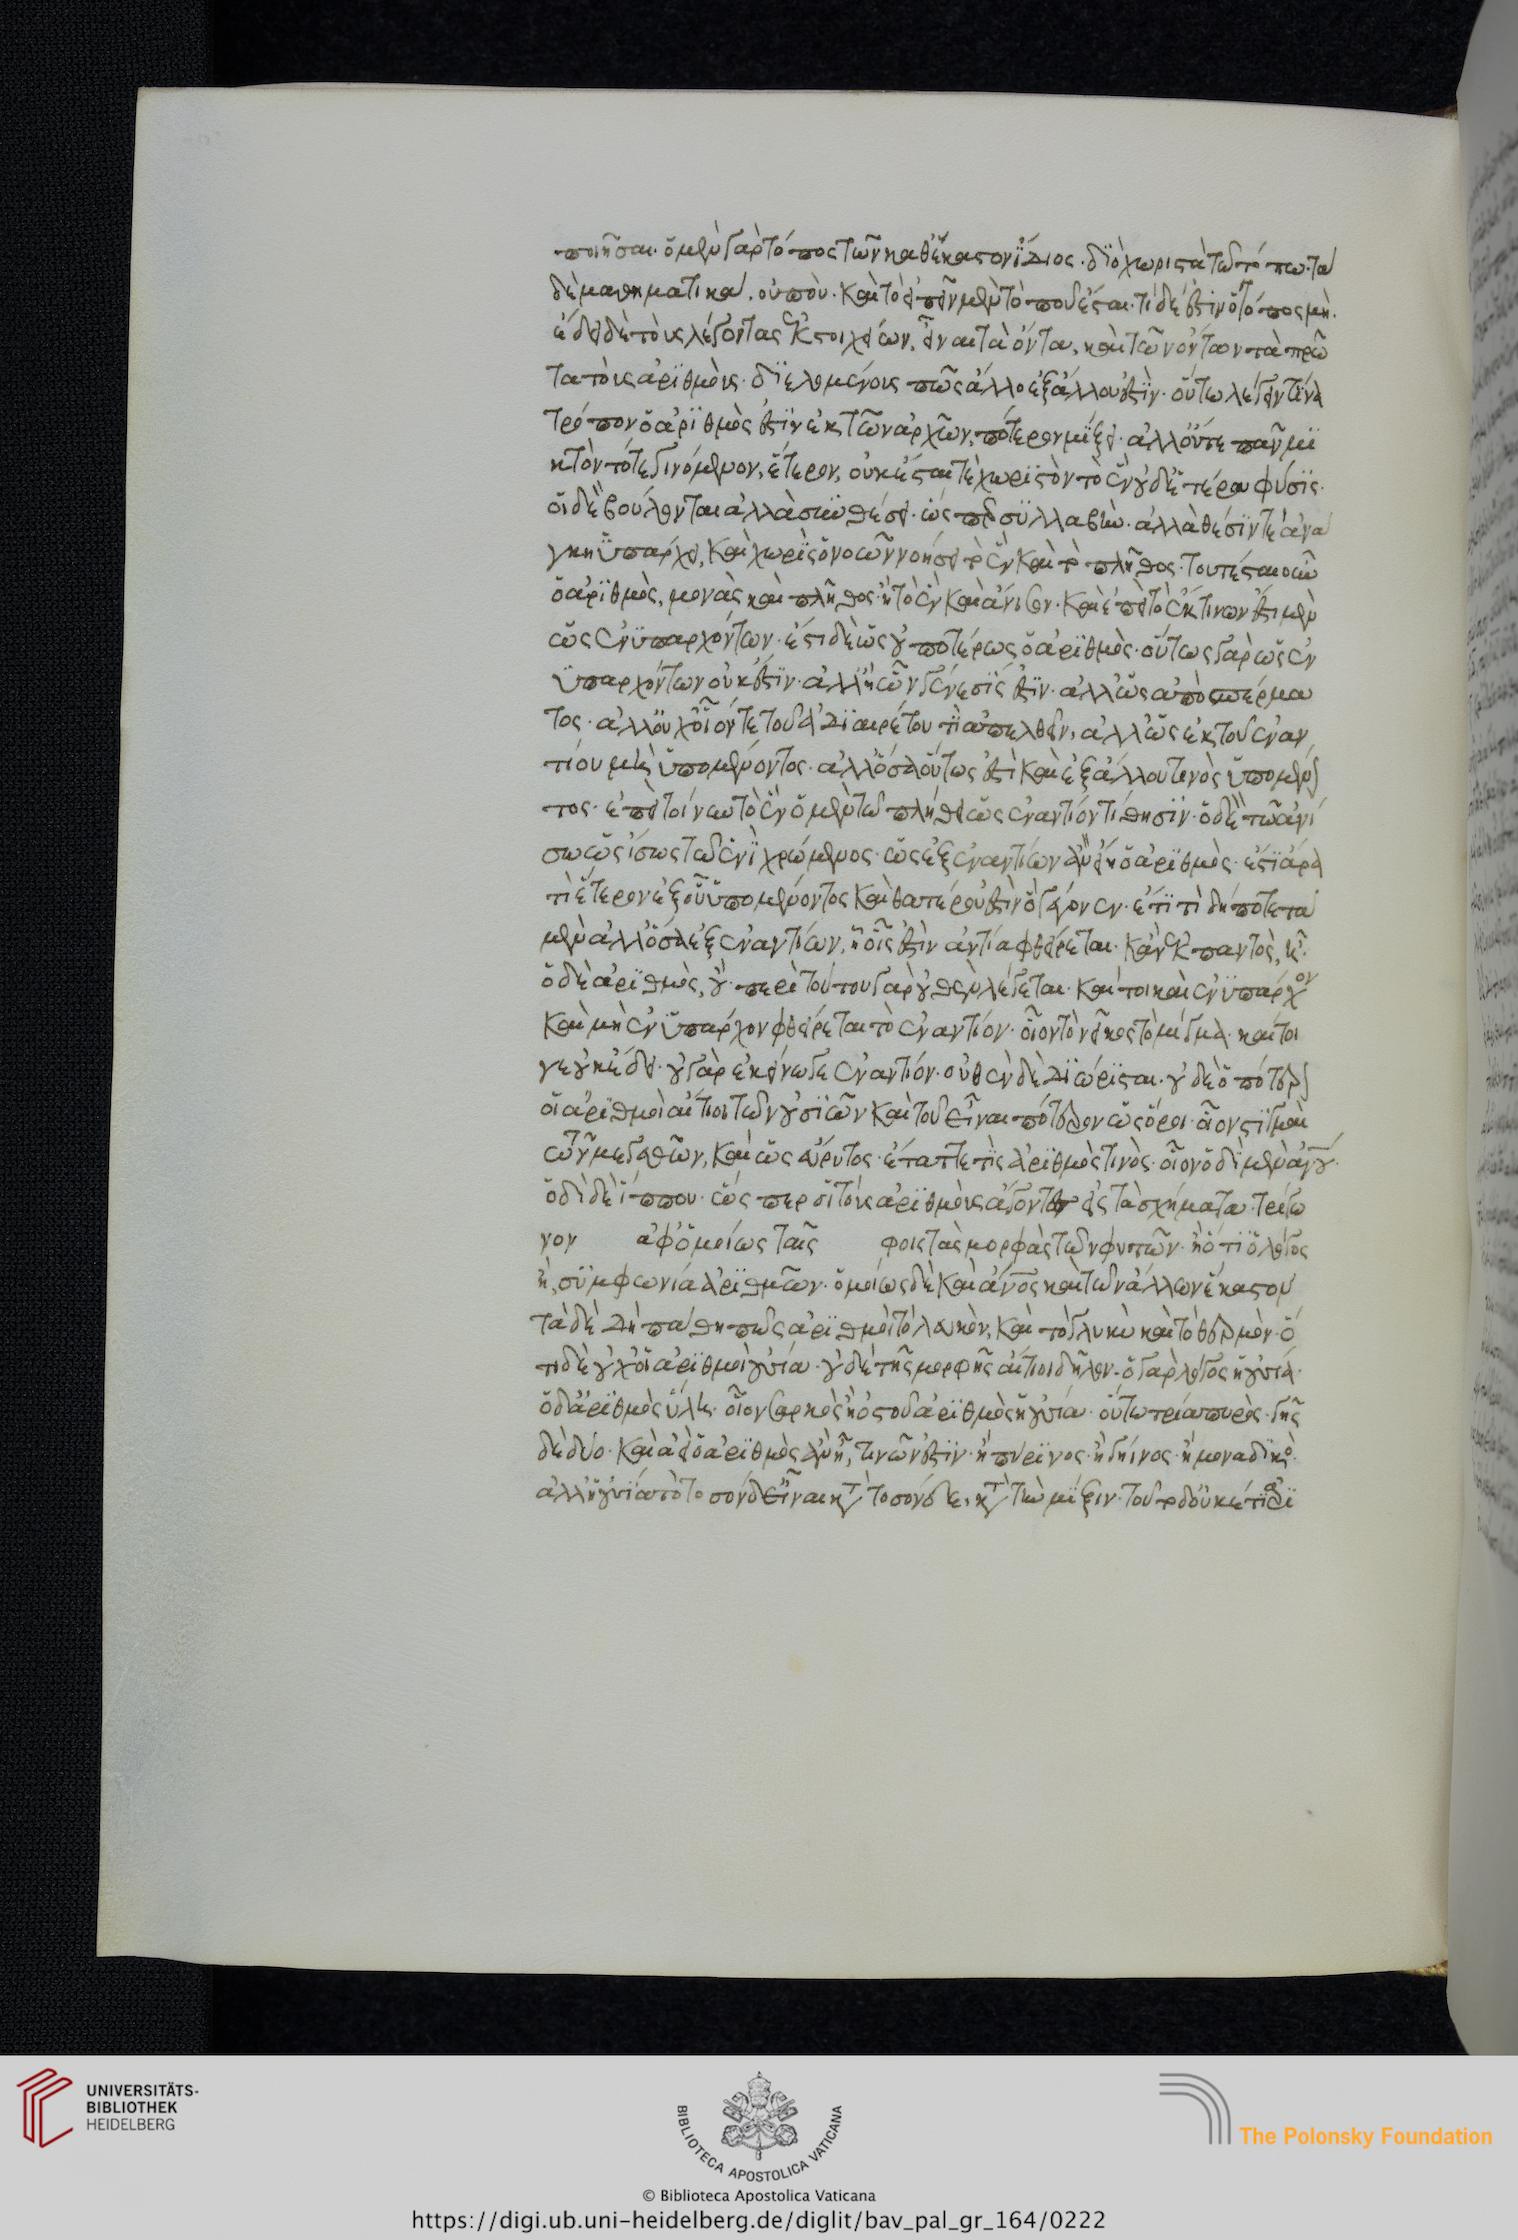 ποιῆσαι· ὁ μὲν γὰρ τόπος τῶν καθέκαστον ἴδιος· διὸ χωριστὰ τῶ τόπω· τὰ
δὲ μαθηματικὰ, οὐ ποὺ· καὶ τὸ εἰπεῖν μὲν τὸ ποὺ ἔσται· τί δέ ἐστιν ὁ τόπος μὴ·
ἔδει δὲ τοὺς λέγοντας ἐκ στοιχείων, εἶναι τὰ ὄντα, καὶ τῶν ὄντων τὰ πρῶ
τα τοὺς ἀριθμοὺς· διελομένους πῶς ἄλλο ἐξ ἄλλου ἐστὶν· οὕτω λέγειν τίνα
τρόπον ὁ ἀριθμὸς ἐστὶν ἐκ τῶν ἀρχῶν, πότερον μίξει· ἀλλ οὔτε πᾶν μι
κτὸν τότε γινόμενον, ἕτερον, οὐκ ἔσται τὲ χωριστὸν τὸ ἓν οὐδ ἑτέρα φύσις·
οἱ δὲ βούλονται ἀλλὰ συνθέσει· ὡς περ συλλαβὴ· ἀλλὰ θέσιν τὲ ἀνά
γκη ὑπάρχει, καὶ χωρὶς ὁ νοῶν νοήσει τὸ ἓν καὶ τὸ πλῆθος· τοῦτ ἔσται οὖν
ὁ ἀριθμὸς, μονὰς καὶ πλῆθος· ἢ τὸ ἓν καὶ ἄνισον· καὶ ἐπεὶ τὸ ἐκ τινων ἐστι μὲν
ὡς ἐνυπαρχόντων· ἔστι δὲ ὡς οὐ ποτέρως ὁ ἀριθμὸς· οὕτως γὰρ ὡς ἐν
ὑπαρχόντων οὐκ ἐστὶν· ἀλλ ἢ ὧν γένεσις ἐστὶν· ἀλλ ὡς ἀπὸ σπέρμα
τος· ἀλλ οὐχ οἷόν τε τοῦ ἀδιαιρέτου τὶ ἀπελθεῖν, ἀλλ ὡς ἐκ τοῦ ἐναν
τίου μὴ ὑπομένοντος· ἀλλ ὅσα οὕτως ἐστὶ καὶ ἐξ ἄλλου τινὸς ὑπομένον
τος· ἐπεὶ τοίνυν τὸ ἓν ὁ μὲν τῶ πλήθει ὡς ἐναντίον τίθησιν· ὁ δὲ τῶ ἀνί
σω ὡς ἴσως τῶ ἑνὶ χρώμενος· ὡς ἐξ ἐναντίων ἂν εἴη ὁ ἀριθμὸς· ἔστι ἄρα
τὶ ἕτερον ἐξ οὗ ὑπομένοντος καὶ θατέρου ἐστὶν ὁ γέγονεν· ἔτι τὶ δή ποτε τὰ
μὲν ἀλλ ὅσα ἐξ ἐναντίων, ἢ οἷς ἐστὶν ἀντία φθείρεται· κἂν ἐκ παντὸς, ἦ·
ὁ δὲ ἀριθμὸς, οὐ· περὶ τούτου γὰρ οὐθὲν λέγεται· καί τοι καὶ ἐνυπάρχον
καὶ μὴ ἐνυπάρχον φθείρεται τὸ ἐναντίον· οἷον τὸ νεῖκος τὸ μίγμα· καί τοι
γε οὐκ ἔδει· οὐ γὰρ ἐκείνω γε ἐναντίον· οὐθὲν δὲ διώρισται· οὐδὲ ὁποτέρως
οἱ ἀριθμοὶ αἴτιοι τῶν οὐσιῶν καὶ τοῦ εἶναι· πότερον ὡς ὅροι· οἷον στιγμαὶ
τῶν μεγεθῶν, καὶ ὡς εὔρυτος· ἔταττε τὶς ἀριθμὸς τινὸς· οἷον ὁδὶ μὲν ἀνου·
ὁδὶ δὲ ἵππου· ὥς περ οἱ τοὺς ἀριθμοὺς ἄγοντες εἰς τὰ σχήματα· τρίγω
νον ἀφ ὁμοίως ταῖς φοις τὰς μορφὰς τῶν φυτῶν· ἢ ὅτι ὁ λόγος
ἡ, συμφωνία ἀριθμῶν· ὁμοίως δὲ καὶ ἄνος καὶ τῶν ἄλλων ἕκαστον
τὰ δὲ δὴ πάθη πῶς ἀριθμοὶ τὸ λευκὸν, καὶ τὸ γλυκὺ καὶ τὸ θερμὸν· ὅ
τι δὲ οὐχ οἱ ἀριθμοὶ οὐσία· οὐδὲ τῆς μορφῆς αἴτιοι δῆλον· ὁ γὰρ λόγος ἡ οὐσία·
ὁ δ ἀριθμὸς ὕλη· οἷον σαρκὸς ἢ ὀστοῦ ἀριθμὸς ἡ οὐσία· οὕτω τρία πυρὸς· γῆς
δὲ δύο· καὶ ἀεὶ ὁ ἀριθμὸς ἂν ἦ, τινῶν ἐστὶν· ἢ πύρινος· ἢ γήινος· ἢ μοναδικὸς·
ἀλλ ἡ οὐσία τὸ τοσόνδ εἶναι κτ τοσόνδε, κτ τὴν μίξιν· τοῦτο δ οὐκέτι ἀρι
UNIVERSITÄTS-
BIBLIOTHEK
HEIDELBERG
BIBLIOTECA APOSTOLICA VATICANA
The Polonsky Foundation
© Biblioteca Apostolica Vaticana
https://digi.ub.uni-heidelberg.de/diglit/bav_pal_gr_164/0222